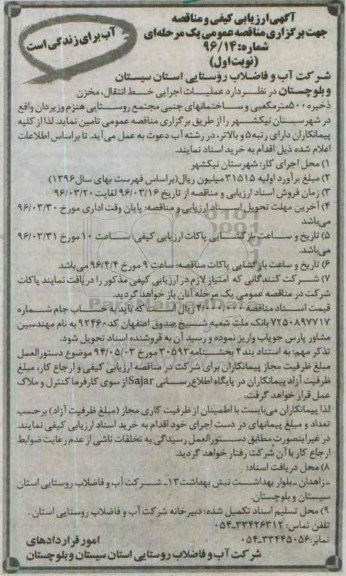 آگهی ارزیابی کیفی و مناقصه
جهت برگزاری مناقصه عمومی یک مرحله ای
شماره: ۹۶/۱۴
(نوبت اول)
آب برای زندگی است
شرکت آب و فاضلاب روستایی استان سیستان
و بلوچستان در نظر دارد عملیات اجرایی خط انتقال، مخزن
ذخیره ۵۰۰ مترمکعبی و ساختمانهای جنبی مجتمع روستایی هنزم وزیردان واقع
در شهرستان نیکشهر را از طریق برگزاری مناقصه عمومی تامین نماید. لذا از کلیه
پیمانکاران دارای رتبه ۵ و بالاتر، در رشته آب دعوت به عمل می آید. تا براساس اطلاعات
اعلام شده ذیل اقدام به خرید اسناد نمایند.
۱) محل اجرای کار: شهرستان نیکشهر
۲) مبلغ برآورد اولیه ۳۱۵۱۵ میلیون ریال (براساس فهرست بهای سال ۱۳۹۶)
۳) زمان فروش اسناد ارزیابی و مناقصه از تاریخ ۹۶/۰۳/۱۶ لغایت ۹۶/۰۳/۲۰
۴) آخرین مهلت تحویل اسناد ارزیابی و مناقصه: پایان وقت اداری مورخ ۹۶/۰۳/۳۰
می باشد.
۵) تاریخ و ساعت بازگشایی پاکات ارزیابی کیفی، ساعت ۱۰ مورخ ۹۶/۰۳/۳۱
می باشد.
۶) تاریخ و ساعت بازگشایی پاکات مناقصه: ساعت ۹ مورخ ۹۶/۴/۴ می باشد
۷) شرکت کنندگانی که امتیاز لازم در ارزیابی کیفی مذکور را دریافت نمایند پاکات
شرکت در مناقصه عمومی یک مرحله آنان باز خواهد گردید.
قیمت اسناد مناقصه ریال می باشد که باید به حساب جام شماره
۷۲۵۰۸۹۷۷۱۷ بانک ملت شعبه بسیج صندوق اصفهان کد ۹۲۴۶۰ به نام مهندسین
مشاور پارس جویاب واریز نموده و رسید آن به فروشنده اسناد تحویل شود.
تذکر مهم: به استناد بند ۲ بخشنامه ۳۰۵۹۳ مورخ ۹۴/۰۵/۰۳ موضوع دستورالعمل
مبلغ ظرفیت مجاز پیمانکاران برای شرکت در مناقصه ارزیابی کیفی و ارجاع کار، مبلغ
ظرفیت آزاد پیمانکاران در پایگاه اطلاع رسانی Sajar از سوی کارفرما کنترل و ملاک
عمل قرار خواهد گرفت.
لذا پیمانکاران می بایست با اطمینان از ظرفیت کاری مجاز (مبلغ ظرفیت آزاد) برحسب
تعداد و مبلغ پیمانهای در دست اجرای خود اقدام به خرید اسناد ارزیابی کیفی نمایند.
در غیر اینصورت مطابق دستورالعمل رسیدگی به تخلفات ناشی از عدم رعایت ضوابط
ارجاع کار با آن شرکت رفتار خواهد گردید.
۸) محل دریافت اسناد:
- زاهدان - بلوار بهداشت نبش بهداشت ۱۳ - شرکت آب و فاضلاب روستایی استان
سیستان و بلوچستان.
۹) محل تسلیم اسناد تکمیل شده: دبیرخانه شرکت آب و فاضلاب روستایی استان.
تلفن تماس: ۳۳۴۲۶۳۱۲-۰۵۴
نمابر: ۳۳۴۴۵۰۵۶-۰۵۴
امور قراردادهای
شرکت آب و فاضلاب روستایی استان سیستان و بلوچستان